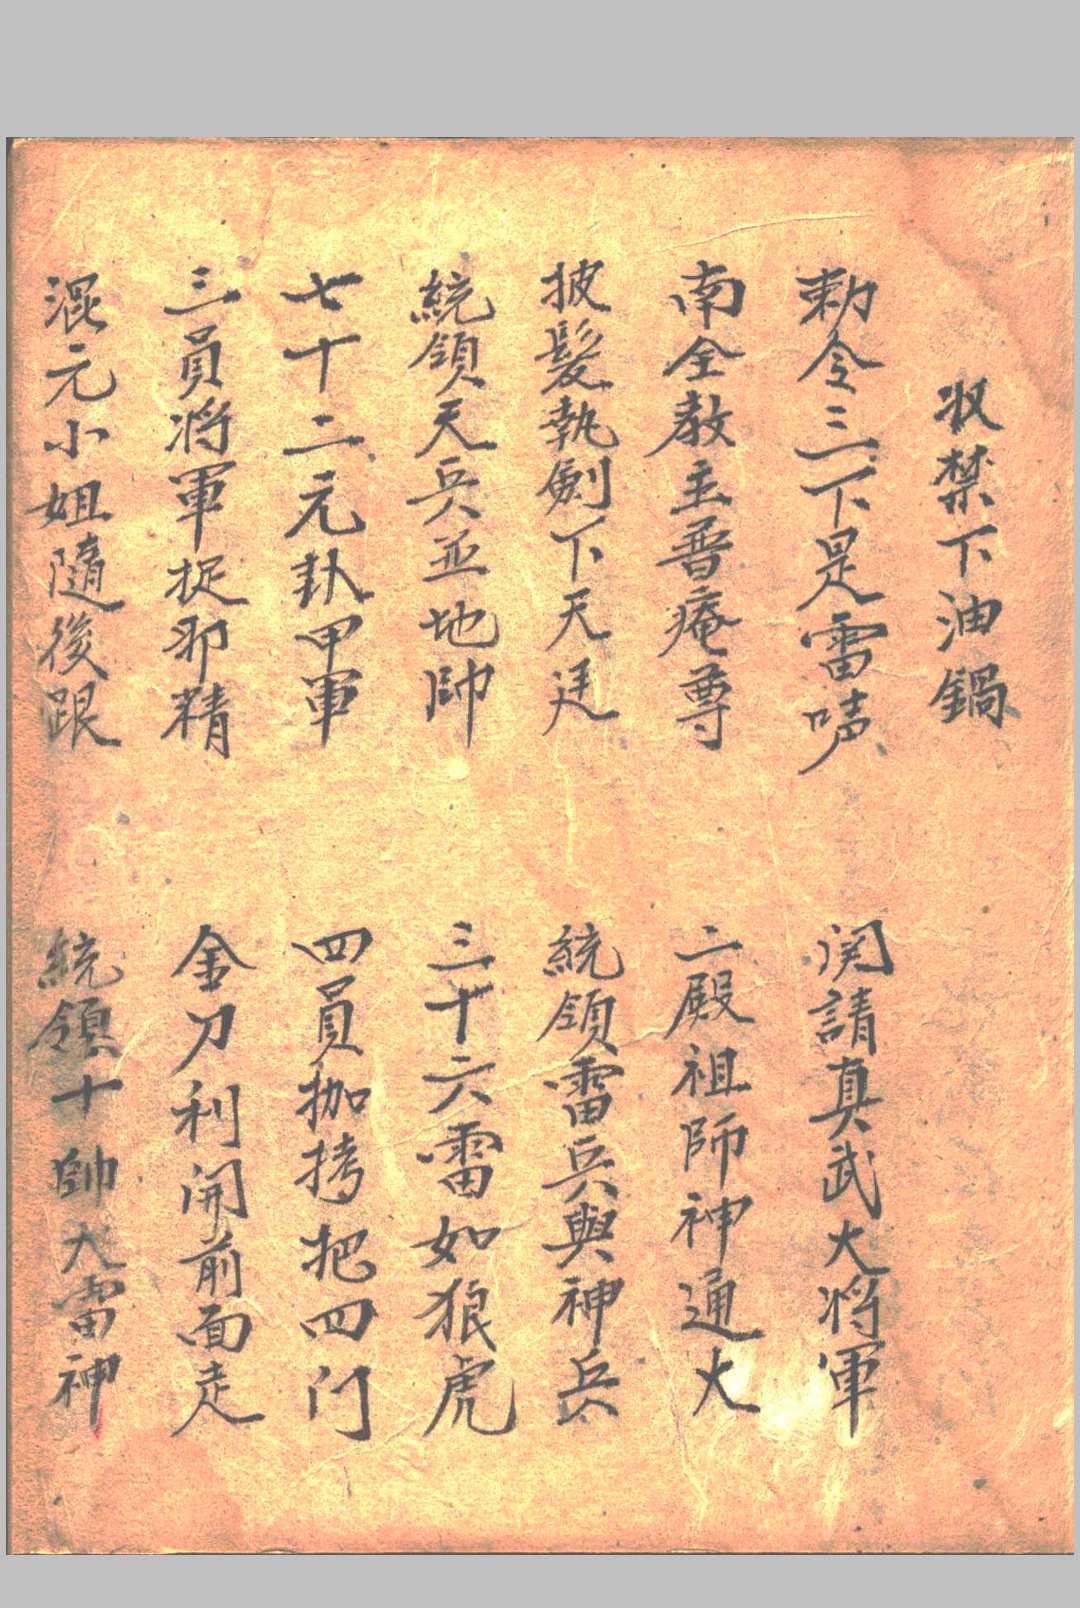 収禁下油鍋
勅令三下是雷声 関請真武大将軍
南全教主普庵尊 二殿祖師神通大
披髮執劍下天廷 統領雷兵與神兵
統領天兵並地帥 三十六雷如狼虎
七十二元卦甲軍 四員枷拷把四门
三員将軍捉邪精 金刀利開前面走
混元小姐隨後跟 統領十帥大雷神